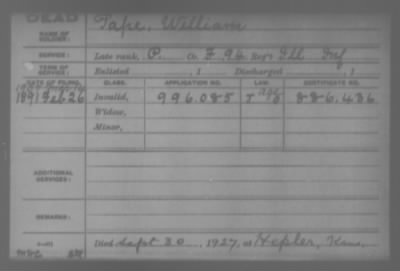 DEAD
Tape, William
NAME OF SOLDIER:
SERVICE: Late rank, P. Co. F 96 Reg't Ill Inf
TERM OF SERVICE: Enlisted , 1 Discharged , 1
DATE OF FILING. CLASS. APPLICATION NO. LAW. CERTIFICATE NO.
1891 Feb 26 Invalid, 996.085 886.436
Widow,
Minor,
ADDITIONAL SERVICES:
REMARKS:
Died Sept 30, 1927, at Hepler, Kans.